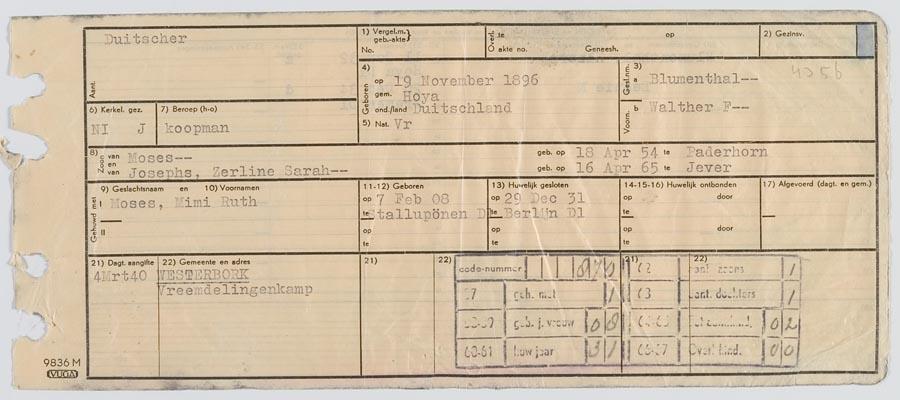 Duitscher
Aant.
1) Vergel.m. geb.-akte}
No.
Overl. te op
akte no. Geneesh.
2) Gezinsv.
4) Geboren
op 19 November 1896
gem. Hoya
ond./land Duitschland
5) Nat. Vr
3)
Gesl.nm. a Blumenthal--
Voorn. b Walther F--
4056
6) Kerkel. gez.
NI J
7) Beroep (h-o)
koopman
8) Zoon van Moses-- geb. op 18 Apr 54 te Paderhorn
en van Josephs, Zerline Sarah-- geb. op 16 Apr 65 te Jever
Gehuwd met
9) Geslachtsnaam en 10) Voornamen
I Moses, Mimi Ruth
II
11-12) Geboren
op 7 Feb 08
te Stallupönen D
op
te
13) Huwelijk gesloten
op 29 Dec 31
te Berlijn Dl
op
te
14-15-16) Huwelijk ontbonden
op door
te
op door
te
17) Afgevoerd (dagt. en gem.)
21) Dagt. aangifte 22) Gemeente en adres
4Mrt40 WESTERBORK
Vreemdelingenkamp
21) 22) 21) 22)
code-number 62 aant. zoons 1
57 geh. met 1 63 aant. dochters 1
geb. j. vrouw 08 02
60-61 huw jaar 31 66-67 Overl. kind. 00
9836 M
VUGA